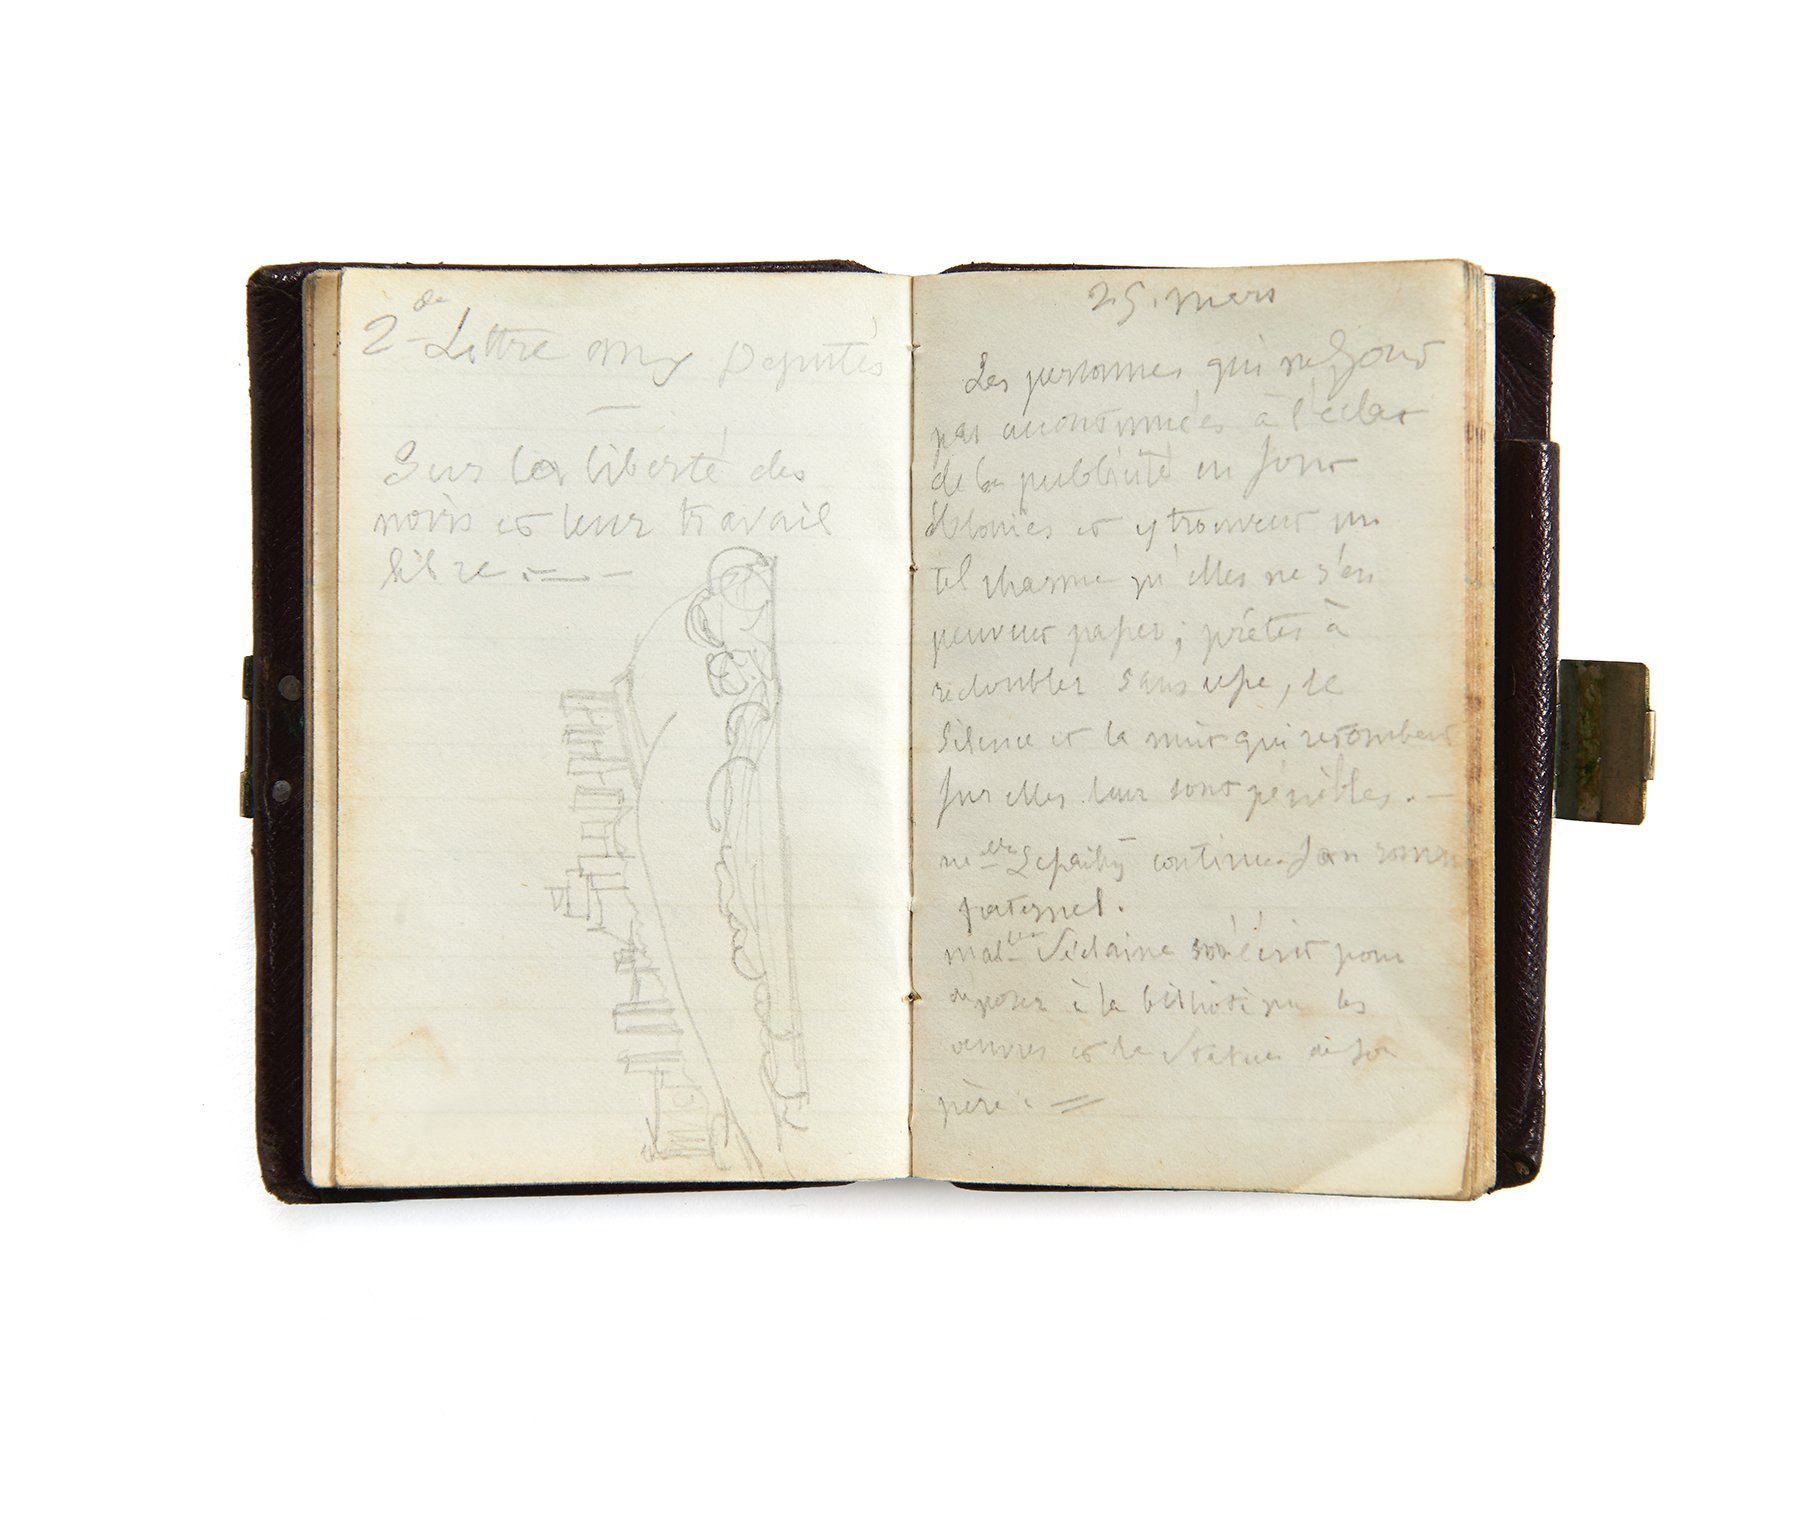 2de Lettre aux Députés
Sur la liberté des
noirs et leur travail
libre. —
25. mars
Les personnes qui ne sont
pas accoutumées à l'éclat
de la publicité en sont
éblouies et y trouvent un
tel charme qu'elles ne s'en
peuvent passer; prêtes à
redoubler sans cesse, le
silence et la nuit qui retombent
sur elles leur sont pénibles. —
continue son roman
fraternel.
m'écrit pour
déposer à la bibliothèque les
œuvres et la statue de son
père. =